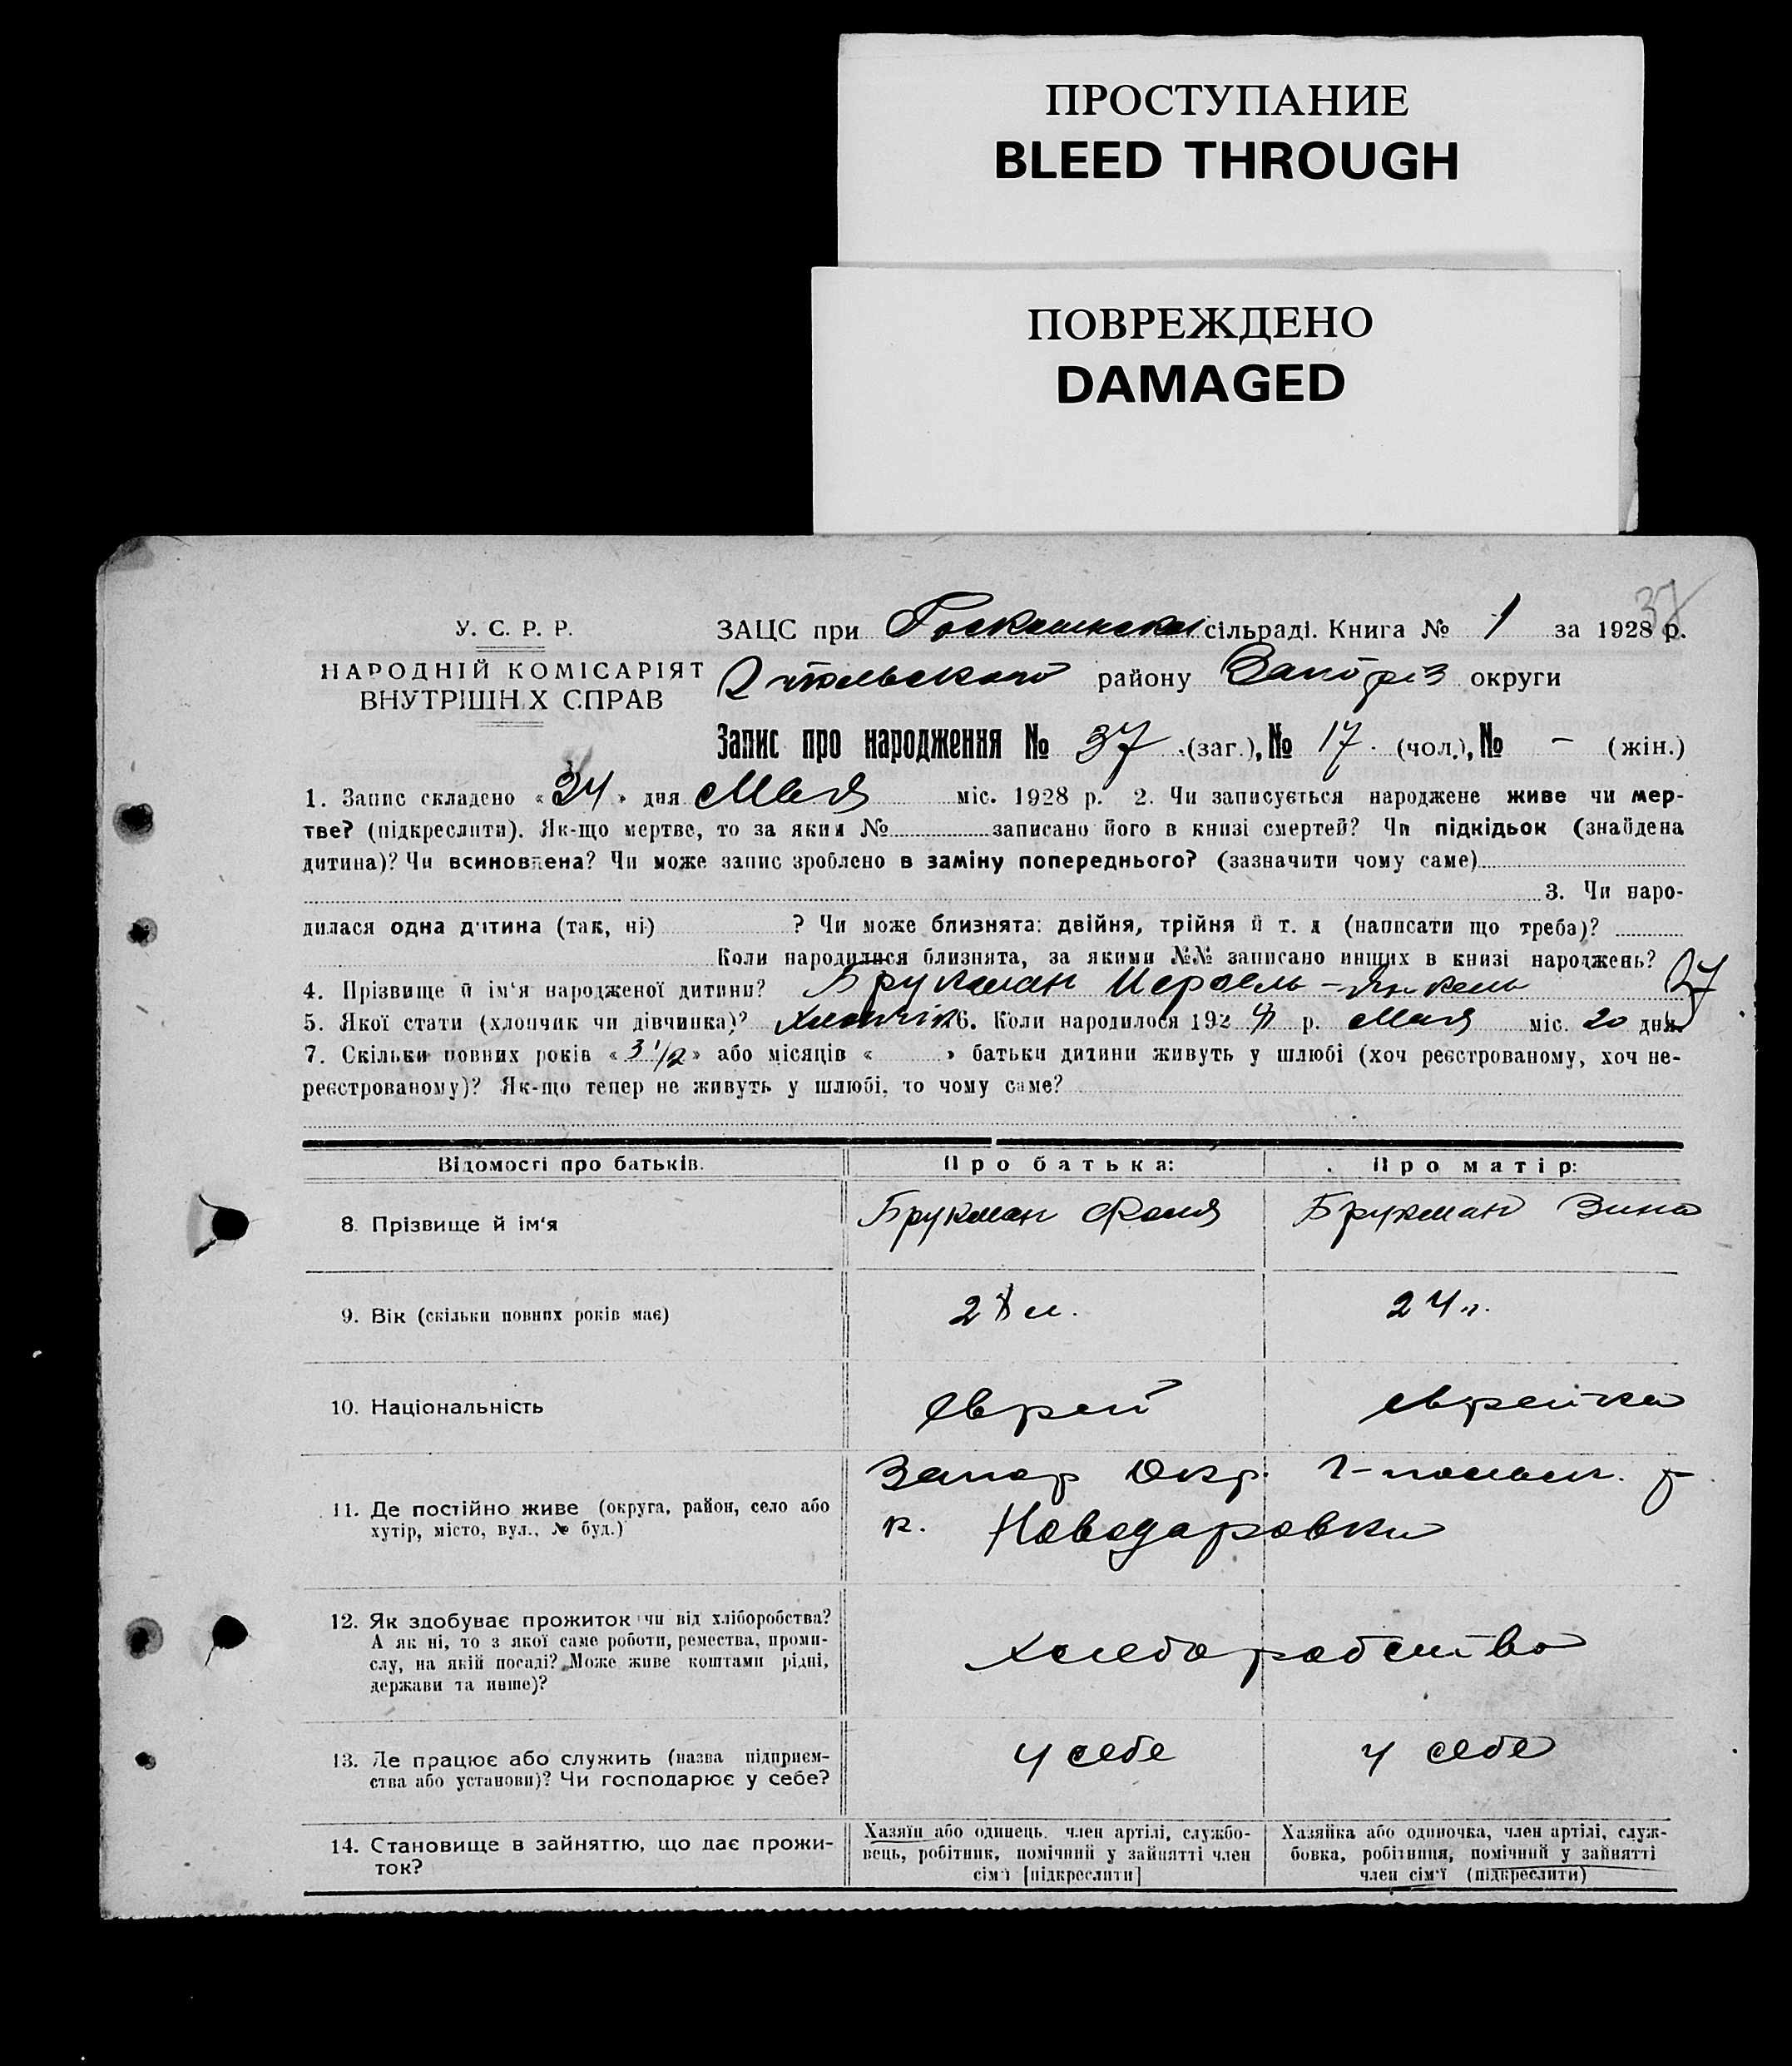 ПРОСТУПАНИЕ
BLEED THROUGH
ПОВРЕЖДЕНО
DAMAGED
37
У. С. Р. Р.
НАРОДНІЙ КОМІСАРІЯТ
ВНУТРІШН.Х СПРАВ
ЗАЦС при сільраді. Книга № 1 за 1928 р.
району округи
Запис про народження № 37 (заг.), № 17 (чол.), № – (жін.)
1. Запис складено «24» дня Мая міс. 1928 р. 2. Чи записується народжене живе чи мер-
тве? (підкреслити). Як-що мертве, то за яким № записано його в книзі смертей? Чи підкідьок (знайдена
дитина)? Чи всиновлена? Чи може запис зроблено в заміну попереднього? (зазначити чому саме)
3. Чи наро-
дилася одна дитина (так, ні) ? Чи може близнята: двійня, трійня й т. д (написати що треба)?
Коли народилися близнята, за якими №№ записано инших в книзі народжень?
4. Прізвище й ім‘я народженої дитини? Брукман Исроель-Янкель 27
5. Якої стати (хлопчик чи дівчинка)? Хлопчик 6. Коли народилося 1928 р. Мая міс. 20 дня.
7. Скільки повних років «3 1/2» або місяців « » батьки дитини живуть у шлюбі (хоч реєстрованому, хоч не-
реєстрованому)? Як-що тепер не живуть у шлюбі, то чому саме?
Відомості про батьків. Про батька: Про матір:
8. Прізвище й ім‘я Брукман Фоля Брукман Зина
9. Вік (скільки повних років має) 28 л. 24 г.
10. Національність Еврей еврейка
11. Де постійно живе (округа, район, село або
хутір, місто, вул., № буд.)
Запор Окр. р
к. Новодаровки
12. Як здобуває прожиток чи від хліборобства?
А як ні, то з якої саме роботи, ремества, проми-
слу, на якій посаді? Може живе коштами рідні,
держави та инше)?
хлеборобство
13. Де працює або служить (назва підприєм-
ства або установи)? Чи господарює у себе?
у себе у себе
14. Становище в зайняттю, що дає прожи-
ток?
Хазяїн або одинець, член артілі, службо-
вець, робітник, помічний у зайнятті член
сім‘ї [підкреслити]
Хазяйка або одиночка, член артілі, служ-
бовка, робітниця, помічний у зайнятті
член сім‘ї (підкреслити)